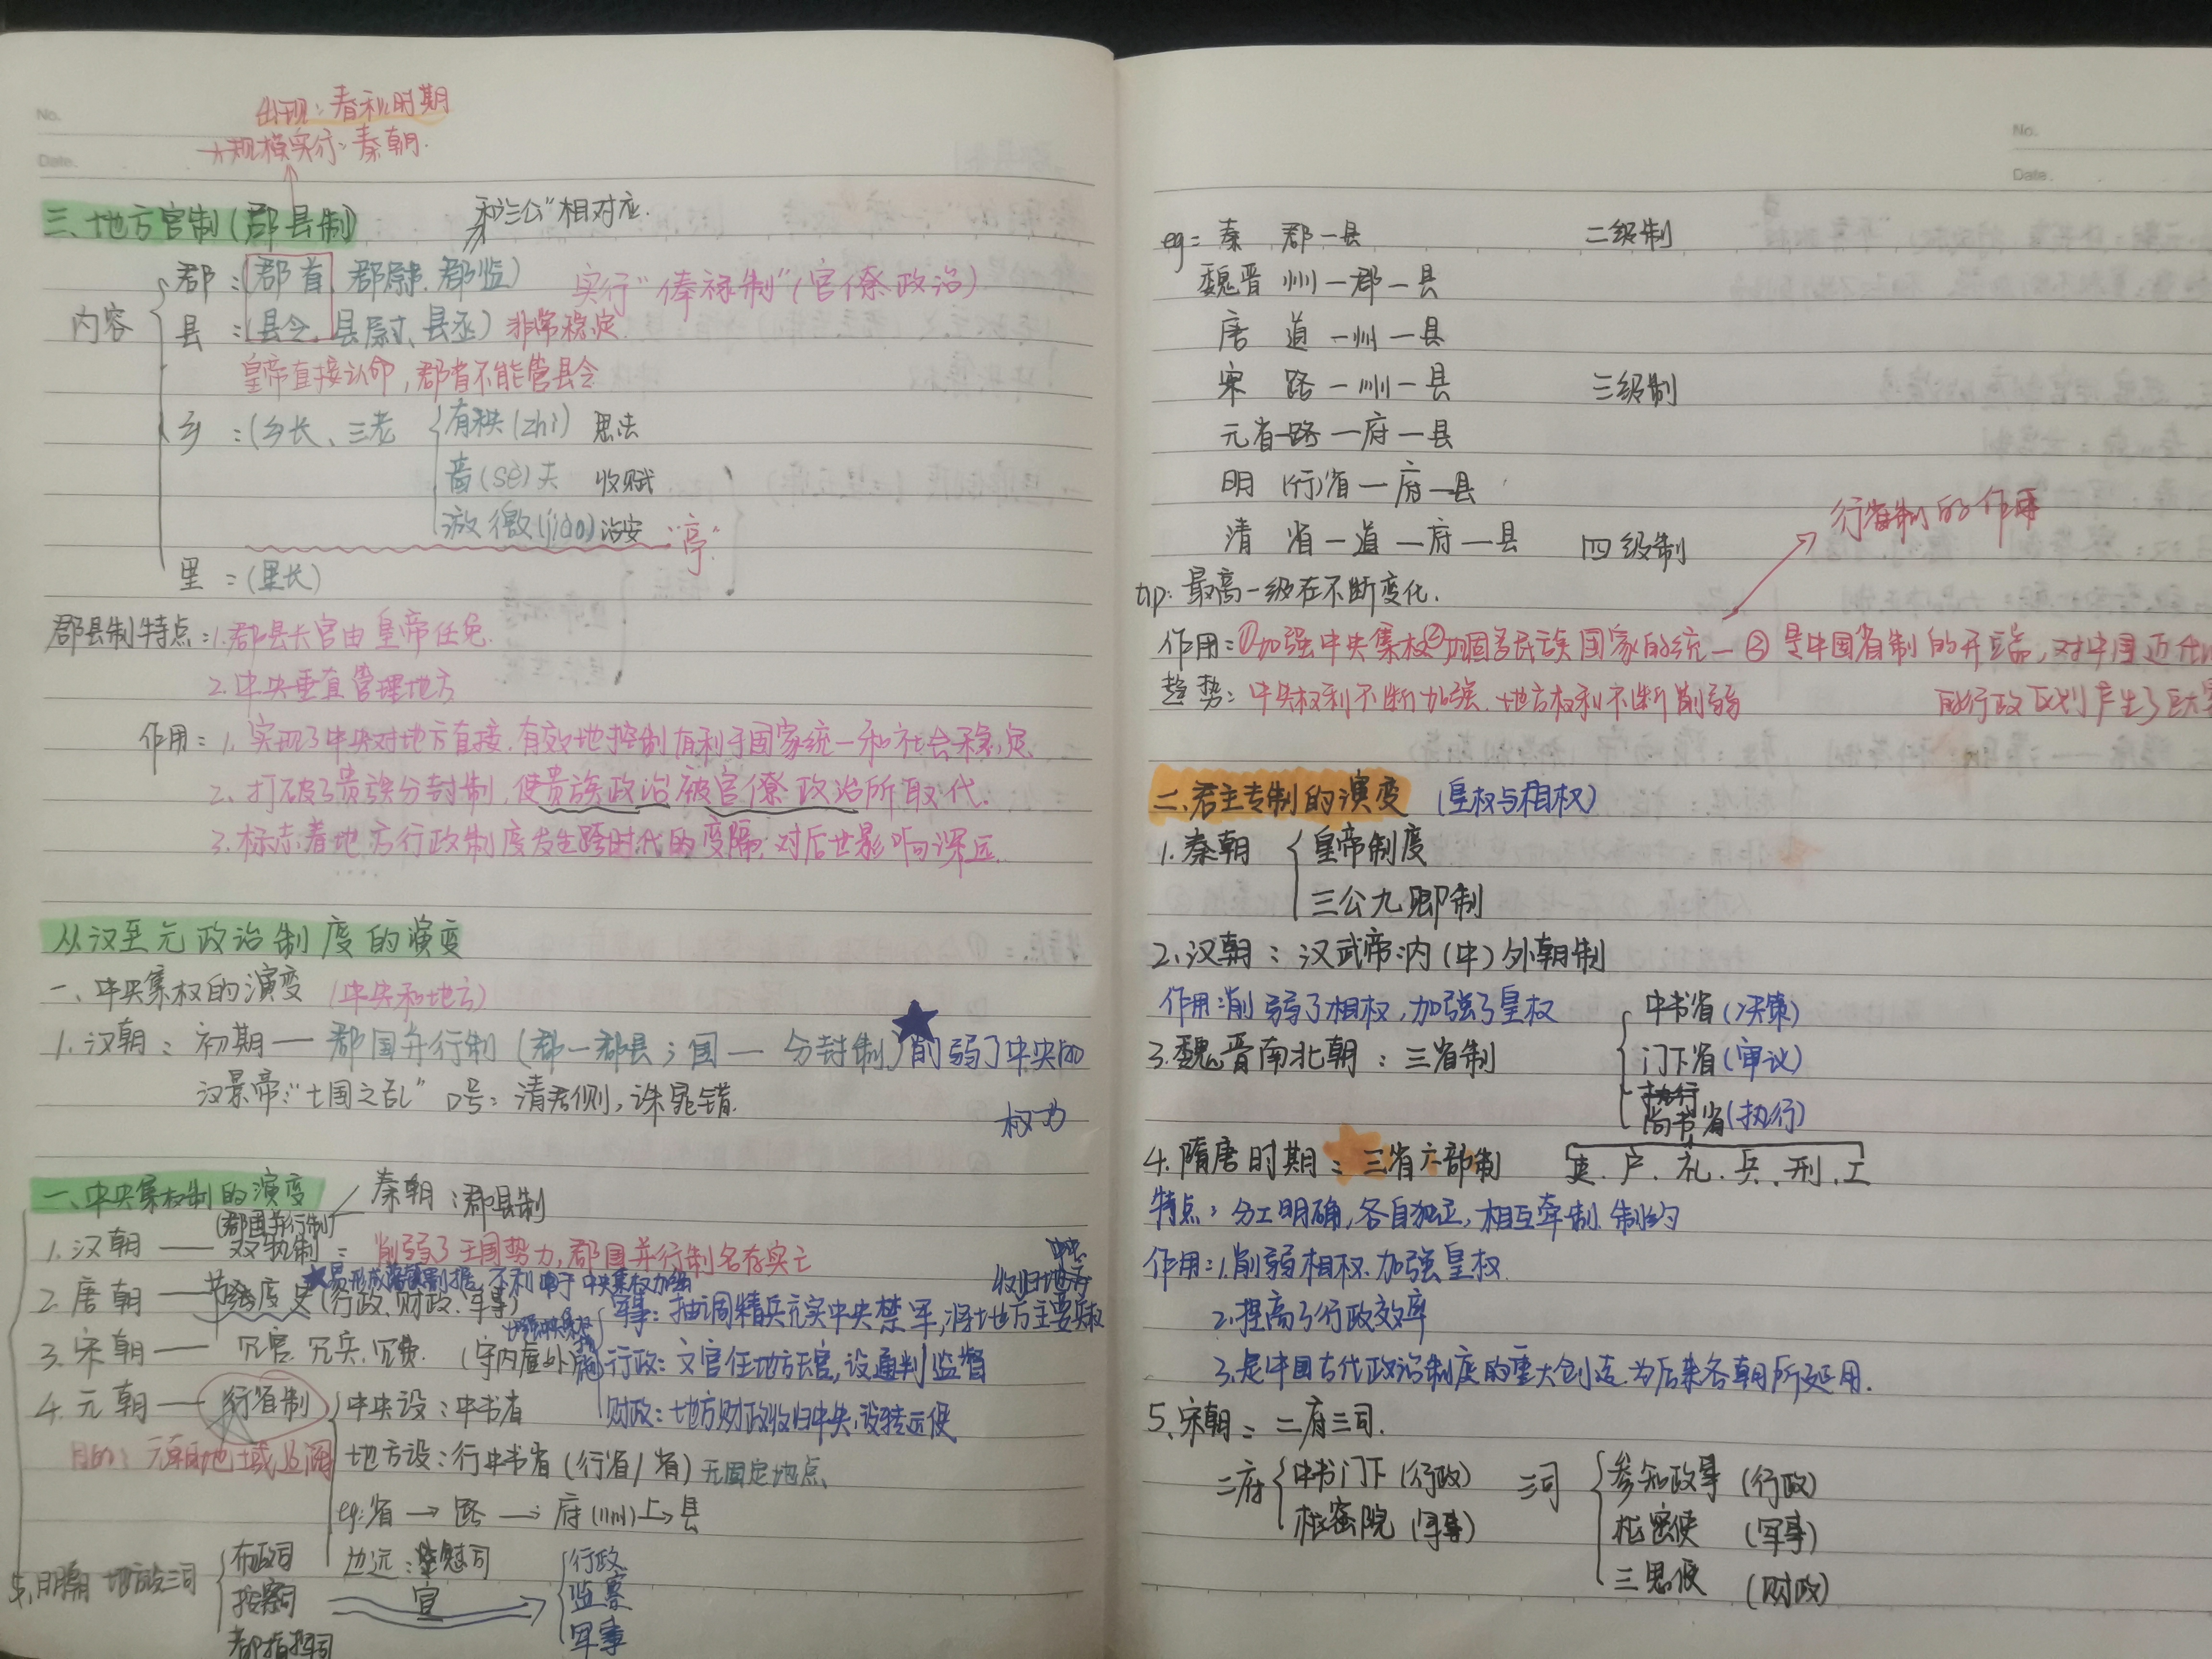 No.
Date.
出现:春秋时期
大规模实行:秦朝.
三、地方官制(郡县制)
和"三公"相对应.
郡:(郡首 郡尉.郡监)
实行"俸禄制"(官僚政治)
内容
县:(县令.县尉、县丞)非常稳定.
皇帝直接认命,郡首不能管县令
乡:(乡长、三老
有秩(zhì) 思法
啬(sè)夫 收赋
游徼(jiào)治安 "亭"
里:(里长)
郡县制特点:1.郡县长官由皇帝任免.
2.中央垂直管理地方
作用:1.实现了中央对地方直接.有效地控制有利于国家统一和社会稳定.
2.打破了贵族分封制,使贵族政治被官僚政治所取代.
3.标志着地方行政制度发生跨时代的变隔:对后世影响深远.
从汉至元政治制度的演变
一、中央集权的演变(中央和地方)
1.汉朝:初期—郡国并行制(郡—郡县;国—分封制)削弱了中央的
权力
汉景帝:"七国之乱" 口号:清君侧,诛晁错.
一、中央集权制的演变
秦朝:郡县制
(郡国并行制)
1.汉朝——双轨制:削弱了王国势力,郡国并行制名存实亡
易形成藩镇割据,不利于中央集权加强
2.唐朝——节度史(行政.财政.军事)
3.宋朝——冗官.冗兵.冗费.(守内虚外)
收归地方
中央
军事:抽调精兵充实中央禁军,将地方主要实权
行政:文官任地方长官,设通判监督
财政:地方财政收归中央,设转运使
4.元朝——行省制
目的:元朝地域辽阔
中央设:中书省
地方设:行中书省(行省/省)无固定地点.
eg:省→路→府(州)→县
边远:宣慰司
宣
5.明朝 地方设三司
布政司
按察司
都指挥司
行政
监察
军事
No.
Date.
eg:秦 郡—县 二级制
魏晋 州—郡—县
唐 道—州—县
宋 路—州—县 三级制
元 省—路—府—县
明 (行)省—府—县
清 省—道—府—县 四级制
行省制的作用
tip:最高一级在不断变化.
作用:①加强中央集权②巩固多民族国家的统一③是中国省制的开端,对中国近代
的行政区划产生了巨大
趋势:中央权利不断加强.地方权利不断削弱
二.君主专制的演变(皇权与相权)
1.秦朝
皇帝制度
三公九卿制
2.汉朝:汉武帝:内(中)外朝制
作用:削弱了相权,加强了皇权
3.魏晋南北朝:三省制
中书省(决策)
门下省(审议)
执行
尚书省(执行)
4.隋唐时期:三省六部制
吏.户.礼.兵.刑.工
特点:分工明确,各自独立,相互牵制.制约
作用:1.削弱相权.加强皇权.
2.提高了行政效率
3.是中国古代政治制度的重大创造.为后来各朝所延用.
5.宋朝:二府三司.
二府
中书门下(行政)
枢密院(军事)
三司
参知政事(行政)
枢密使(军事)
三思使(财政)